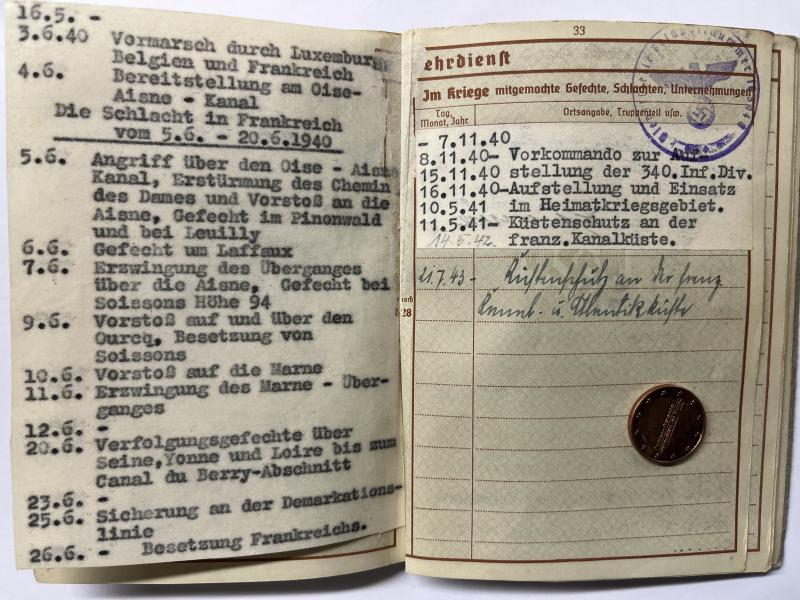 16.5. -
3.6.40 Vormarsch durch Luxemburg
Belgien und Frankreich
4.6. Bereitstellung am Oise-
Aisne - Kanal
Die Schlacht in Frankreich
vom 5.6. - 20.6.1940
5.6. Angriff über den Oise - Aisne
Kanal, Erstürmung des Chemin
des Dames und Vorstoß an die
Aisne, Gefecht im Pinonwald
und bei Leuilly
6.6. Gefecht um Laffaux
7.6. Erzwingung des Überganges
über die Aisne, Gefecht bei
Soissons Höhe 94
9.6. Vorstoß auf und über den
Ourcq, Besetzung von
Soissons
10.6. Vorstoß auf die Marne
11.6. Erzwingung des Marne - Über-
ganges
12.6. -
20.6. Verfolgungsgefechte über
Seine, Yonne und Loire bis zum
Canal du Berry-Abschnitt
23.6. -
25.6. Sicherung an der Demarkations-
linie
26.6. - Besetzung Frankreichs.
33
ehrdienst
Im Kriege mitgemachte Gefechte, Schlachten, Unternehmungen
Tag, Monat, Jahr
Ortsangabe, Truppenteil usw.
- 7.11.40
8.11.40- Vorkommando zur Auf-
15.11.40 stellung der 340.Inf.Div.
16.11.40-Aufstellung und Einsatz
10.5.41 im Heimatkriegsgebiet.
11.5.41- Küstenschutz an der
14.5.42. franz.Kanalküste.
21.7.43 - Küstenschutz an der franz
Kanal- u. Atlantikküste
28